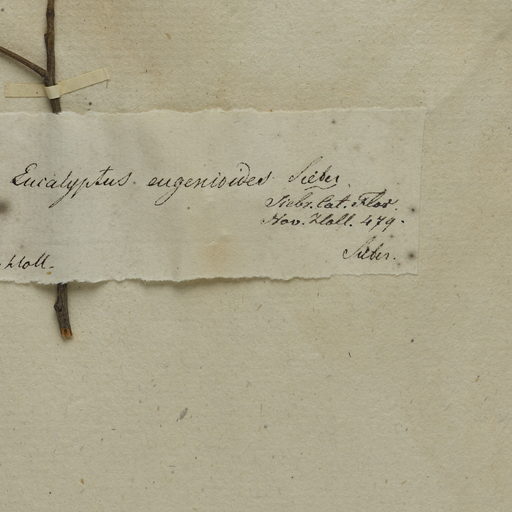 Eucalyptus eugenioides Sieber.
Siebr. Cat. Flor.
Nov. Holl. 479.
. Holl. Siebr.